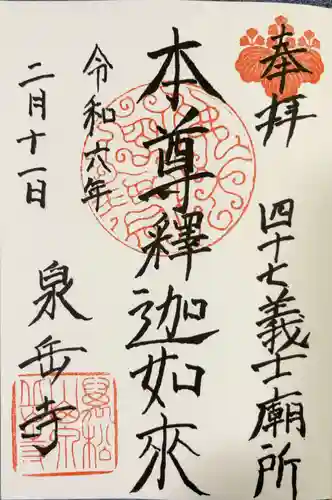 奉拝
四十七義士廟所
本尊釋迦如來
令和六年
二月十一日
泉岳寺